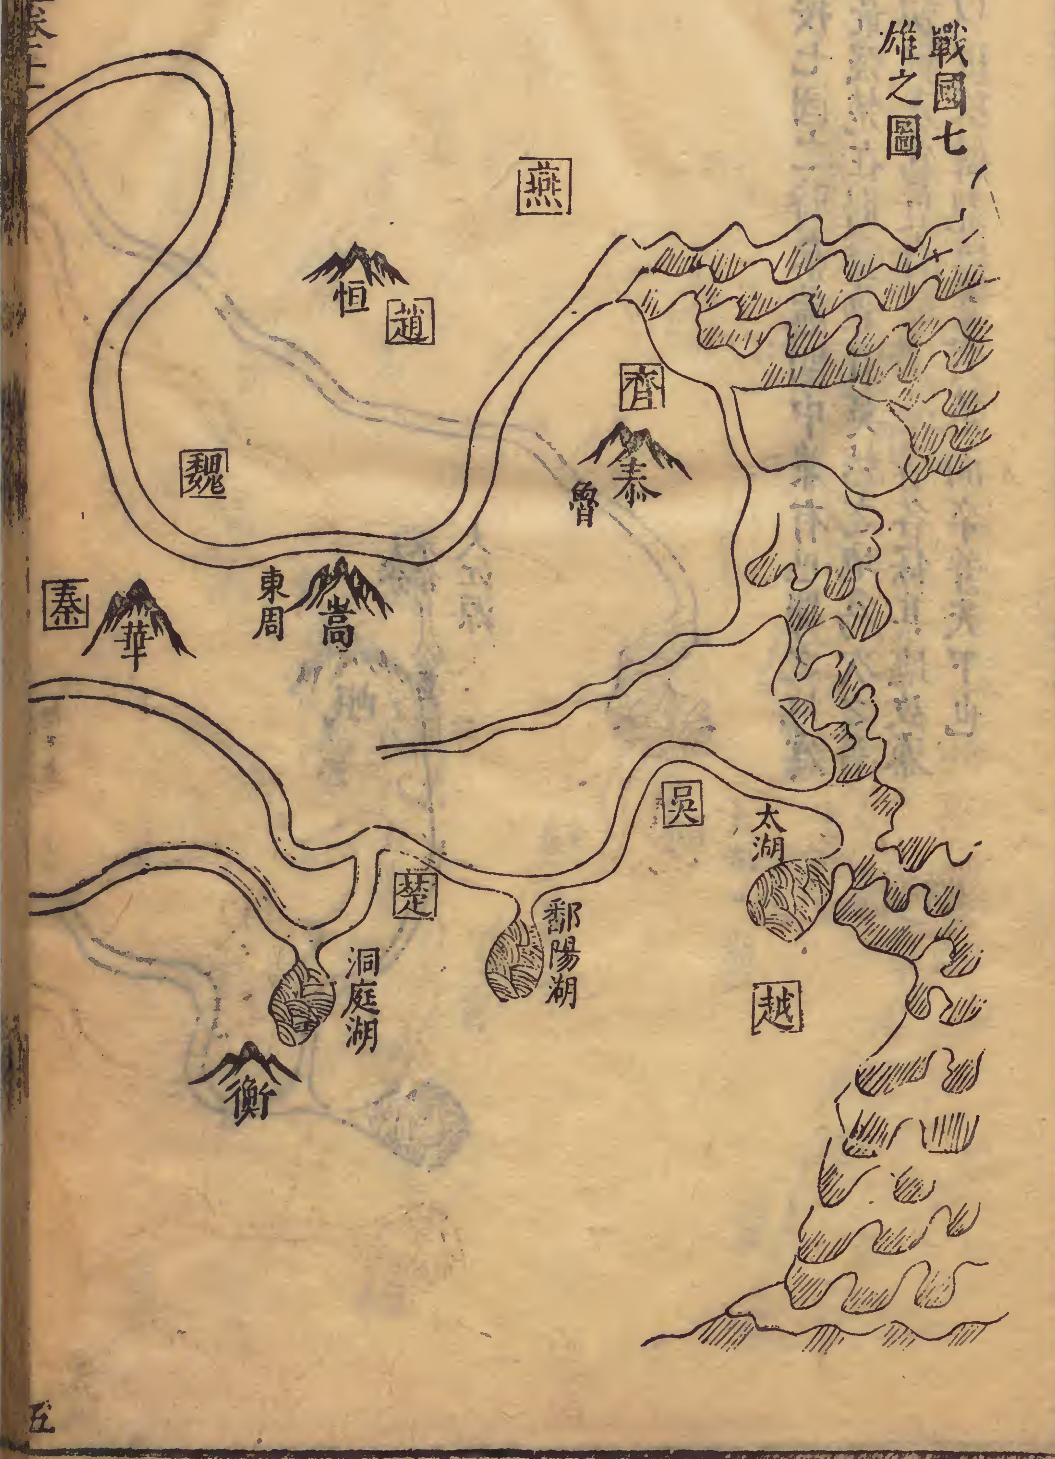 戰國七
雄之圖
燕
恒
趙
齊
泰
魯
魏
東周
嵩
秦
華
吳
太湖
楚
鄱陽湖
洞庭湖
越
衡
五